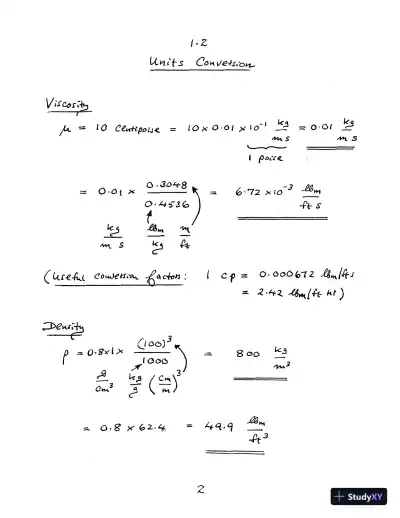 1.2
Units Conversion
Viscosity
μ = 10 Centipoise = 10 x 0.01 x 10⁻¹ kg/m s = 0.01 kg/m s
1 poise
= 0.01 x 0.3048/0.4536 = 6.72 x 10⁻³ lbm/ft s
kg/m s lbm/kg m/ft
(Useful conversion factors: 1 cp = 0.000672 lbm/ft s
= 2.42 lbm/ft hr)
Density
ρ = 0.8 x 1 x (100)³/1000 = 800 kg/m³
g/cm³ kg/g (cm/m)³
= 0.8 x 62.4 = 49.9 lbm/ft³
2
StudyXY